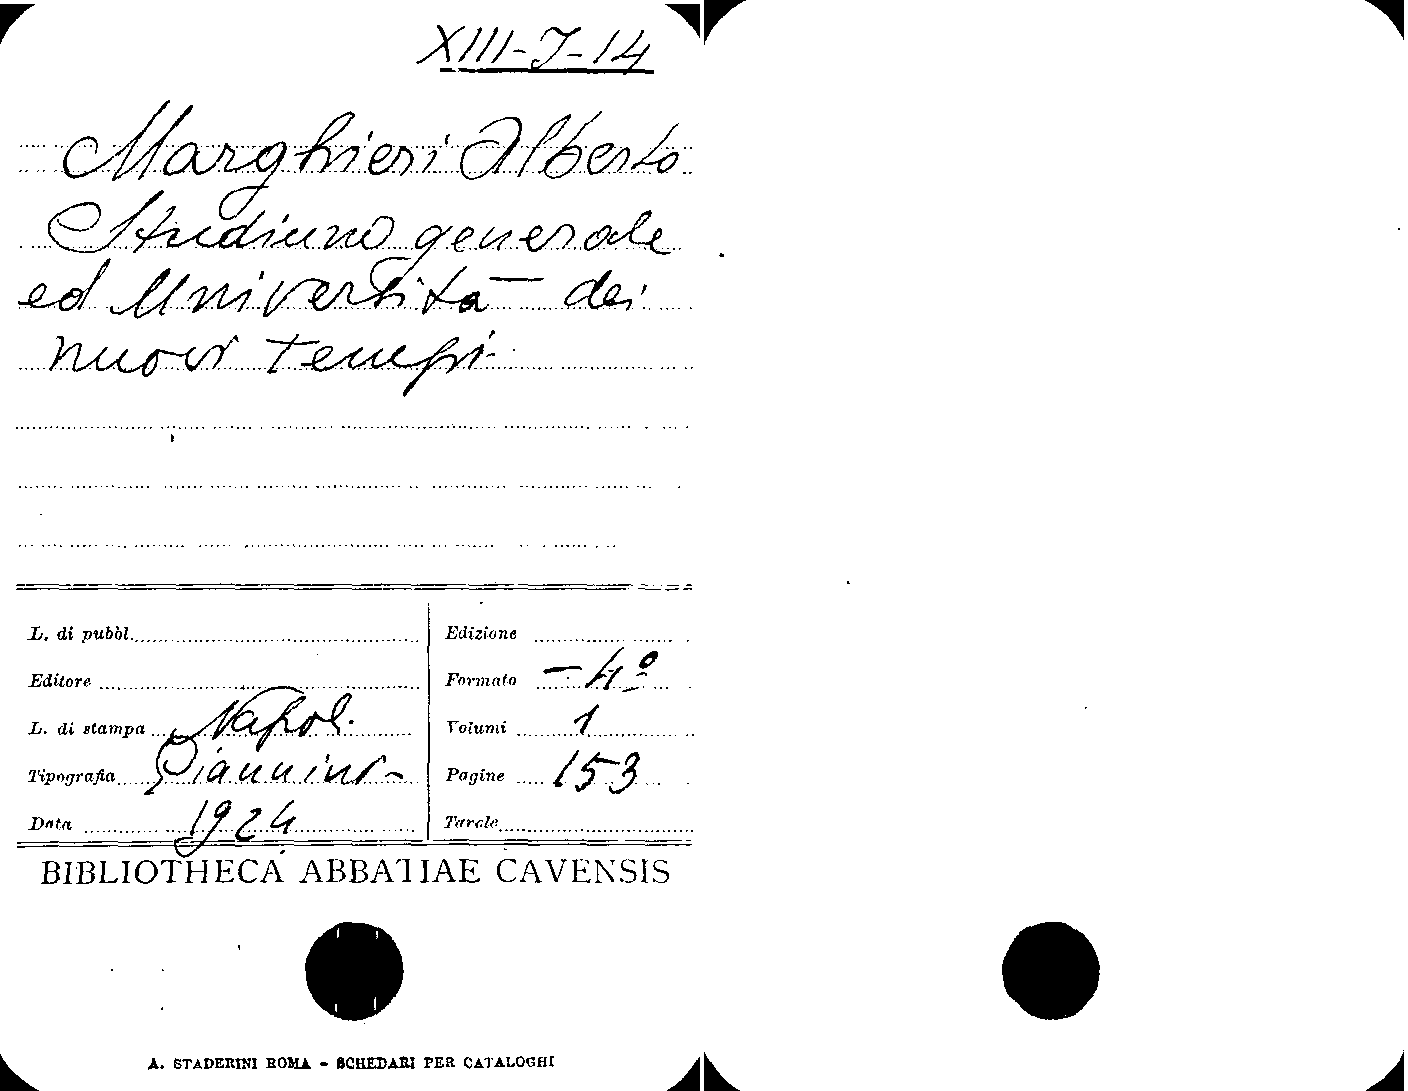 XIII-J-14
Marghieri Alberto
Studium generale
ed Università dei
nuovi tempi
L. di pubbl.
Editore
L. di stampa Napoli
Tipografia Giannini
Data 1924
Edizione
Formato - 4º
Volumi 1
Pagine 153
Tavole
BIBLIOTHECA ABBATIAE CAVENSIS
A. STADERINI ROMA - SCHEDARI PER CATALOGHI